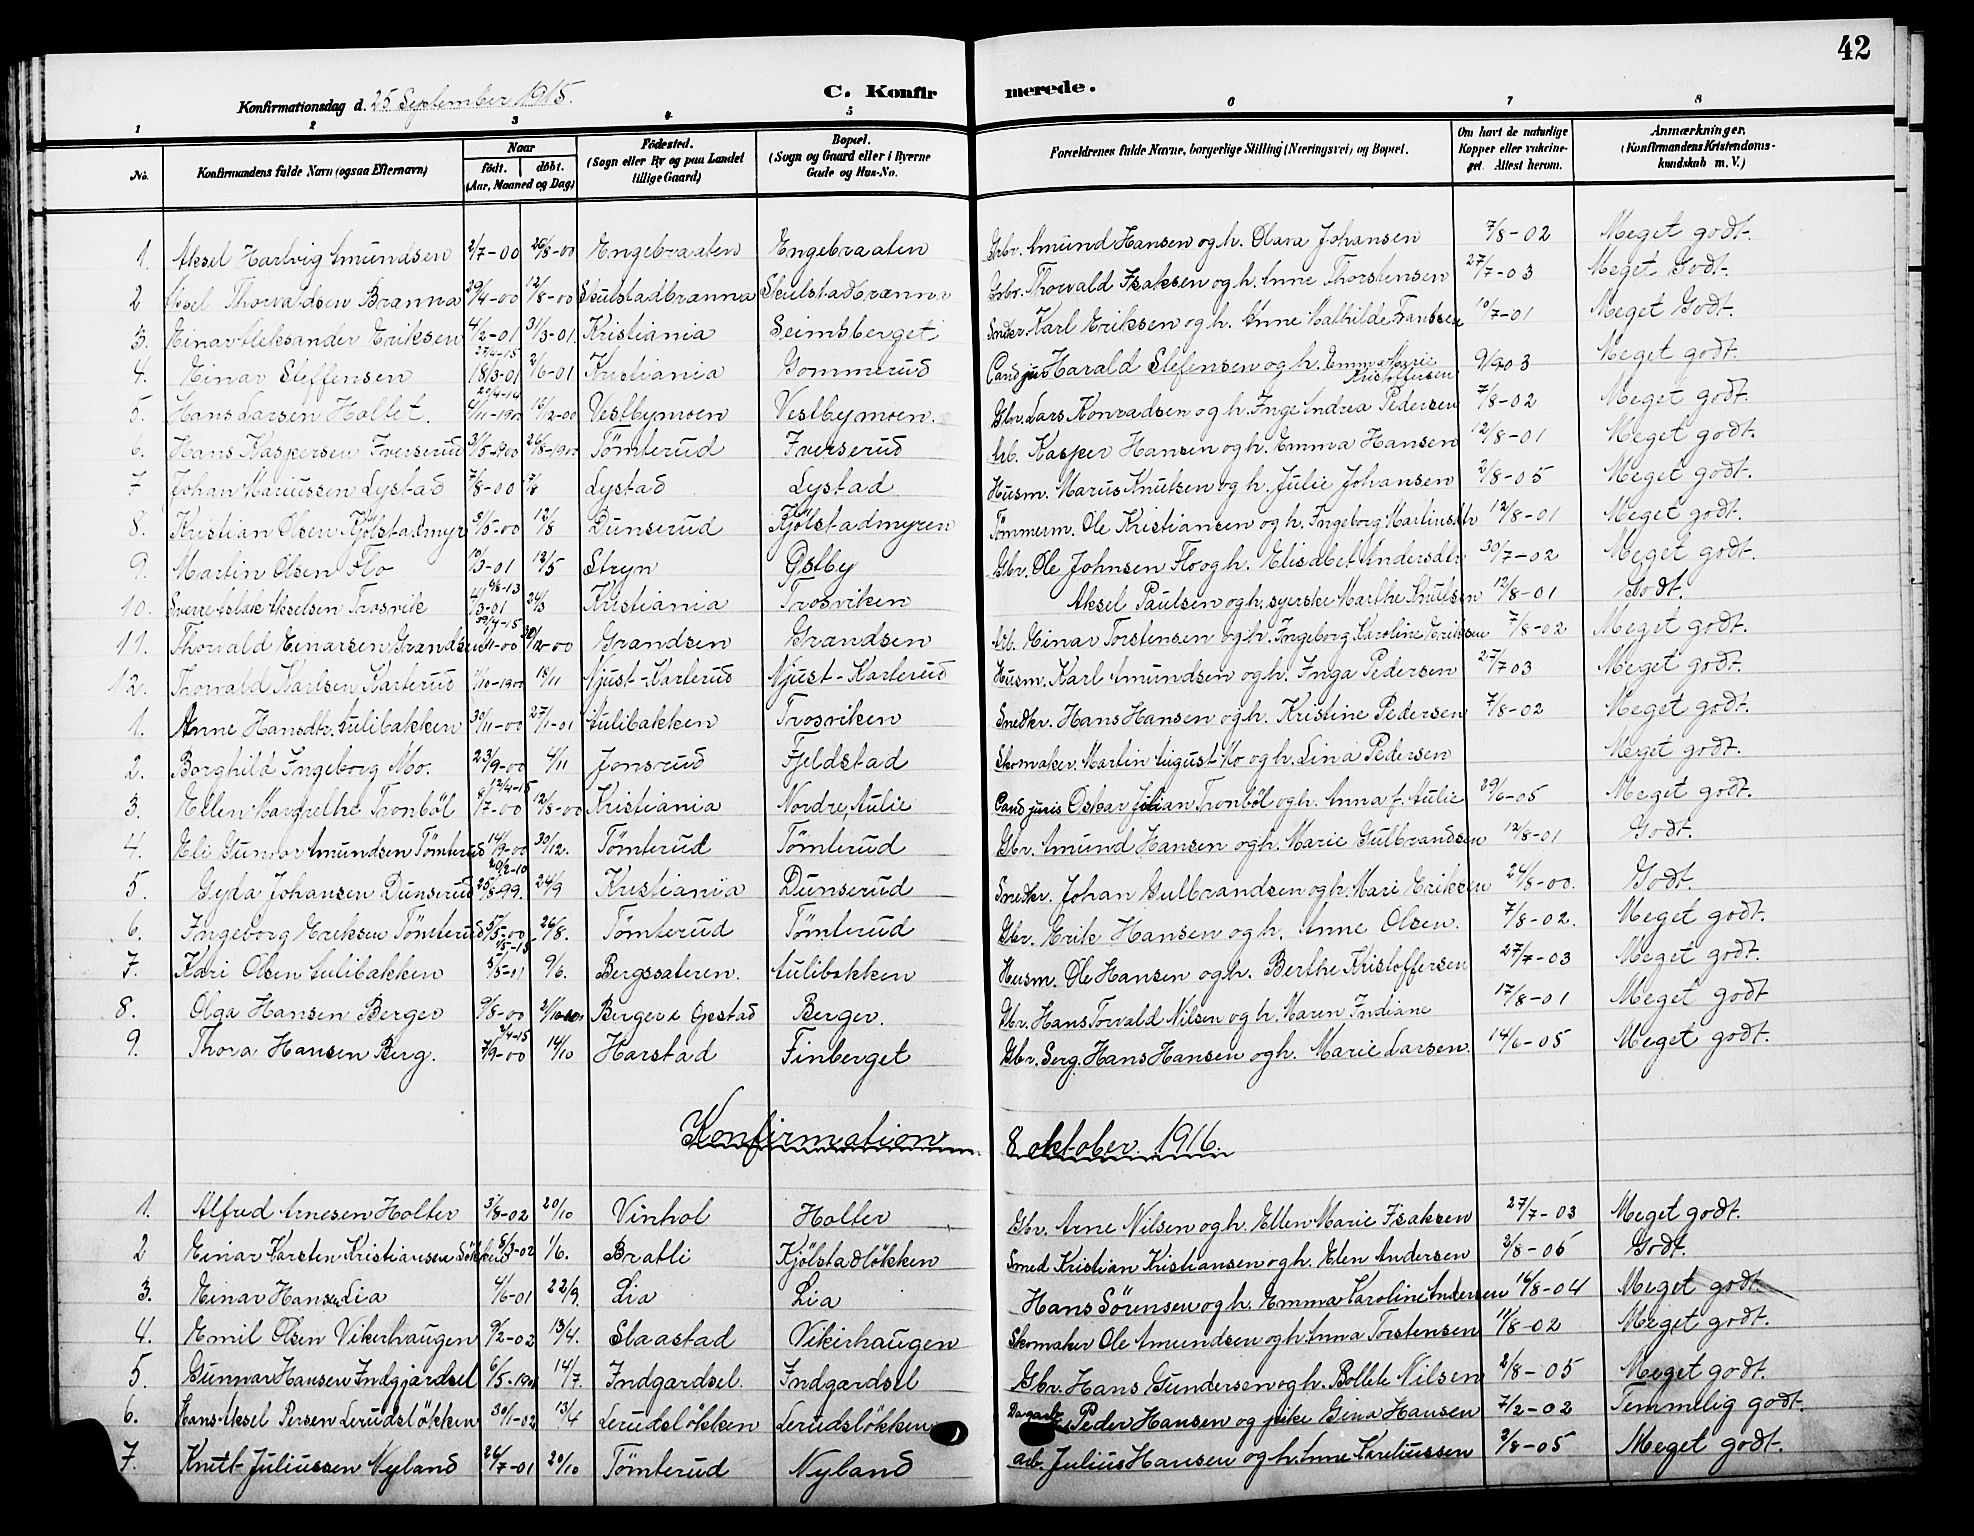 42
Konfirmationsdag d. 25 September 1915. C. Konfirmerede.
1 2 3 4 5 6 7 8
No. Konfirmandens fulde Navn (ogsaa Efternavn) Naar födt. döbt. (Aar, Maaned og Dag) Födested. (Sogn eller By og paa Landet tillige Gaard) Bopæl. (Sogn og Gaard eller i Byerne Gade og Hus-No. Forældrenes fulde Navne, borgerlige Stilling (Næringsvei) og Bopæl. Om havt de naturlige Kopper eller vakcineret. Attest herom. Anmærkninger. (Konfirmandens Kristendomskundskab m. V.)
1. Aksel Hartvig Amundsen 2/7-00 26/8-00 Engebraaten Engebraaten Gbr. Amund Hansen og h. Olava Johansen 7/8-02 Meget godt.
2 Aksel Thorvaldsen Branna 29/4-00 12/8-00 Skulstadbranna Skulstadbranna Gbr. Thorvald Isaksen og h. Anne Thorstensen 27/7-03 Meget Godt.
3. Einar Aleksander Eriksen 4/2-01 31/3-01. Kristiania Seimsberget Snekr. Karl Eriksen og h. Anne Mathilde Frantsen 10/7-01 Meget Godt.
4. Einar Steffensen 27/4-15 18/3-01 2/6-01 Kristiania Gommerud Cand jur Harald Stefensen og h. Emma Marie Kristoffersen 9/9 03 Meget godt.
5. Hans Larsen Holtet. 20/4-14 4/11-1900 16/12-00 Vestbymoen Vestbymoen. Gbr. Lars Konradsen og h. Inge Andrea Pedersen 7/8-02 Meget godt.
6. Hans Kaspersen Iverserud 31/5-1900 26/8-1900 Tömterud Iverserud Arb. Kasper Hansen og h. Emma Hansen 12/8-01 Meget godt.
7 Johan Mariussen Lystad 7/8-00 Lystad Lystad Husm. Marus Knutsen og h. Julie Johansen 2/8-05 Meget godt.
8. Kristian Olsen Kjölstadmyr 3/5-00 12/8 Dunserud Kjölstadmyren Tömmerm. Ole Kristiansen og h. Ingeborg Martinsdtr 12/8-01 Meget godt.
9. Martin Olsen Flo 10/3-01 12/5 Stryn Østby Gbr. Ole Johnsen Flo og h. Elisabet Andersdtr 30/7-02 Meget godt.
10. Sverre Aslak Akselsen Trosvik 9/6-13 4/3-01 24/3 Kristiania Trosviken Aksel Paulsen og h. syerske Marthe Knutsen 12/8-01 Godt.
11. Thorvald Einarsen Grandsen 29/4-15 /11-00 30/12-00 Grandsen Grandsen Arb. Einar Torstensen og h. Ingeborg Karoline Eriksen 7/8-02 Meget godt.
12. Thorvald Karlsen Karterud 1/10-1900 18/11 Njust-Karterud Njust-Karterud Husm. Karl Amundsen og h. Inga Pedersen 27/7 03 Meget godt.
1. Anne Hansdtr. Aulibakken 30/11-00 27/1-01 Aulibakken Trosviken Snedkr. Hans Hansen og h. Kristine Pedersen 7/8-02 Meget godt.
2. Borghild Ingeborg Mo. 23/9-00 4/11 Jonsrud Fjeldstad Skomaker. Martin August Mo og h. Lina Pedersen Meget godt.
3. Ellen Margrethe Tronböl 12/4-15 8/7-00 12/8-00 Kristiania Nordre, Aulie Cand juris Oskar Julian Tronböl og h. Anna f. Aulie 29/6-05 Meget godt.
4. Eli Gunvor Amundsen Tömterud 14/9-00 30/12. Tömterud Tömterud Gbr. Amund Hansen og h. Marie Gulbrandsen 12/8-01 Godt.
5. Gyda Johansen Dunserud 20/2-10 25/8-99. 24/9 Kristiania Dunserud Snedkr. Johan Gulbrandsen og h. Mari Eriksen 24/8-00. Godt.
6. Ingeborg Eriksen Tömterud 5/5-00 26/8. Tömterud Tömterud Gbr. Erik Hansen og h. Anne Olsen. 7/8-02. Meget godt.
7. Kari Olsen Aulibakken 4/5-15 5/5-01 9/6. Bergssæteren. Aulibakken Husm. Ole Hansen og h. Berthe Kristoffersen 27/7-03 Meget godt.
8. Olga Hansen Berger 9/8-00 21/10-00 Berger Opstad Berger. Gbr. Hans Torvald Nilsen og h. Maren Indiane 17/8-01 Meget godt
9. Thora Hansen Berg. 2/4-15 7/9-00 14/10 Harstad Finberget Gbr. Serg. Hans Hansen og h. Marie Larsen. 14/6-05 Meget godt.
Konfirmation 8 oktober 1916.
1. Alfred Arnesen Holter 31/8-02 20/10 Vinhol Holter Gbr. Arne Nilsen og h. Ellen Marie Isaksen 27/7-03 Meget godt.
2 Einar Karsten Kristiansen Lökken 5/3-02 1/6. Bratli Kjölstadlökken Smed Kristian Kristiansen og h. Elen Andersen 2/8-05 Godt.
3. Einar Hansen Lia 4/6-01 22/9. Lia Lia Hans Sörensen og h. Emma Karoline Andersen 16/8-04 Meget godt.
4. Emil Olsen Vikerhaugen 9/2-02 13/4. Slaastad Vikerhaugen Skomaker Ole Amundsen og h. Anna Torstensen 11/8-02 Meget godt.
5. Gunnar Hansen Indgjärdsel 6/5-1901 14/7. Indgardsel. Indgardsel Gbr. Hans Gundersen og h. Bollete Nilsen 2/8-05 Meget godt.
6. Hans Aksel Persen Lerudslökken 30/1-02 13/4 Lerudslökken Lerudslökken Dagarb. Peder Hansen og pike Gina Hansen 7/2-02 Temmelig godt.
7. Knut Juliussen Nyland 26/7-01 20/10 Tömterud Nyland arb. Julius Hansen og h. Anne Kareliussen 2/8-05 Meget godt.